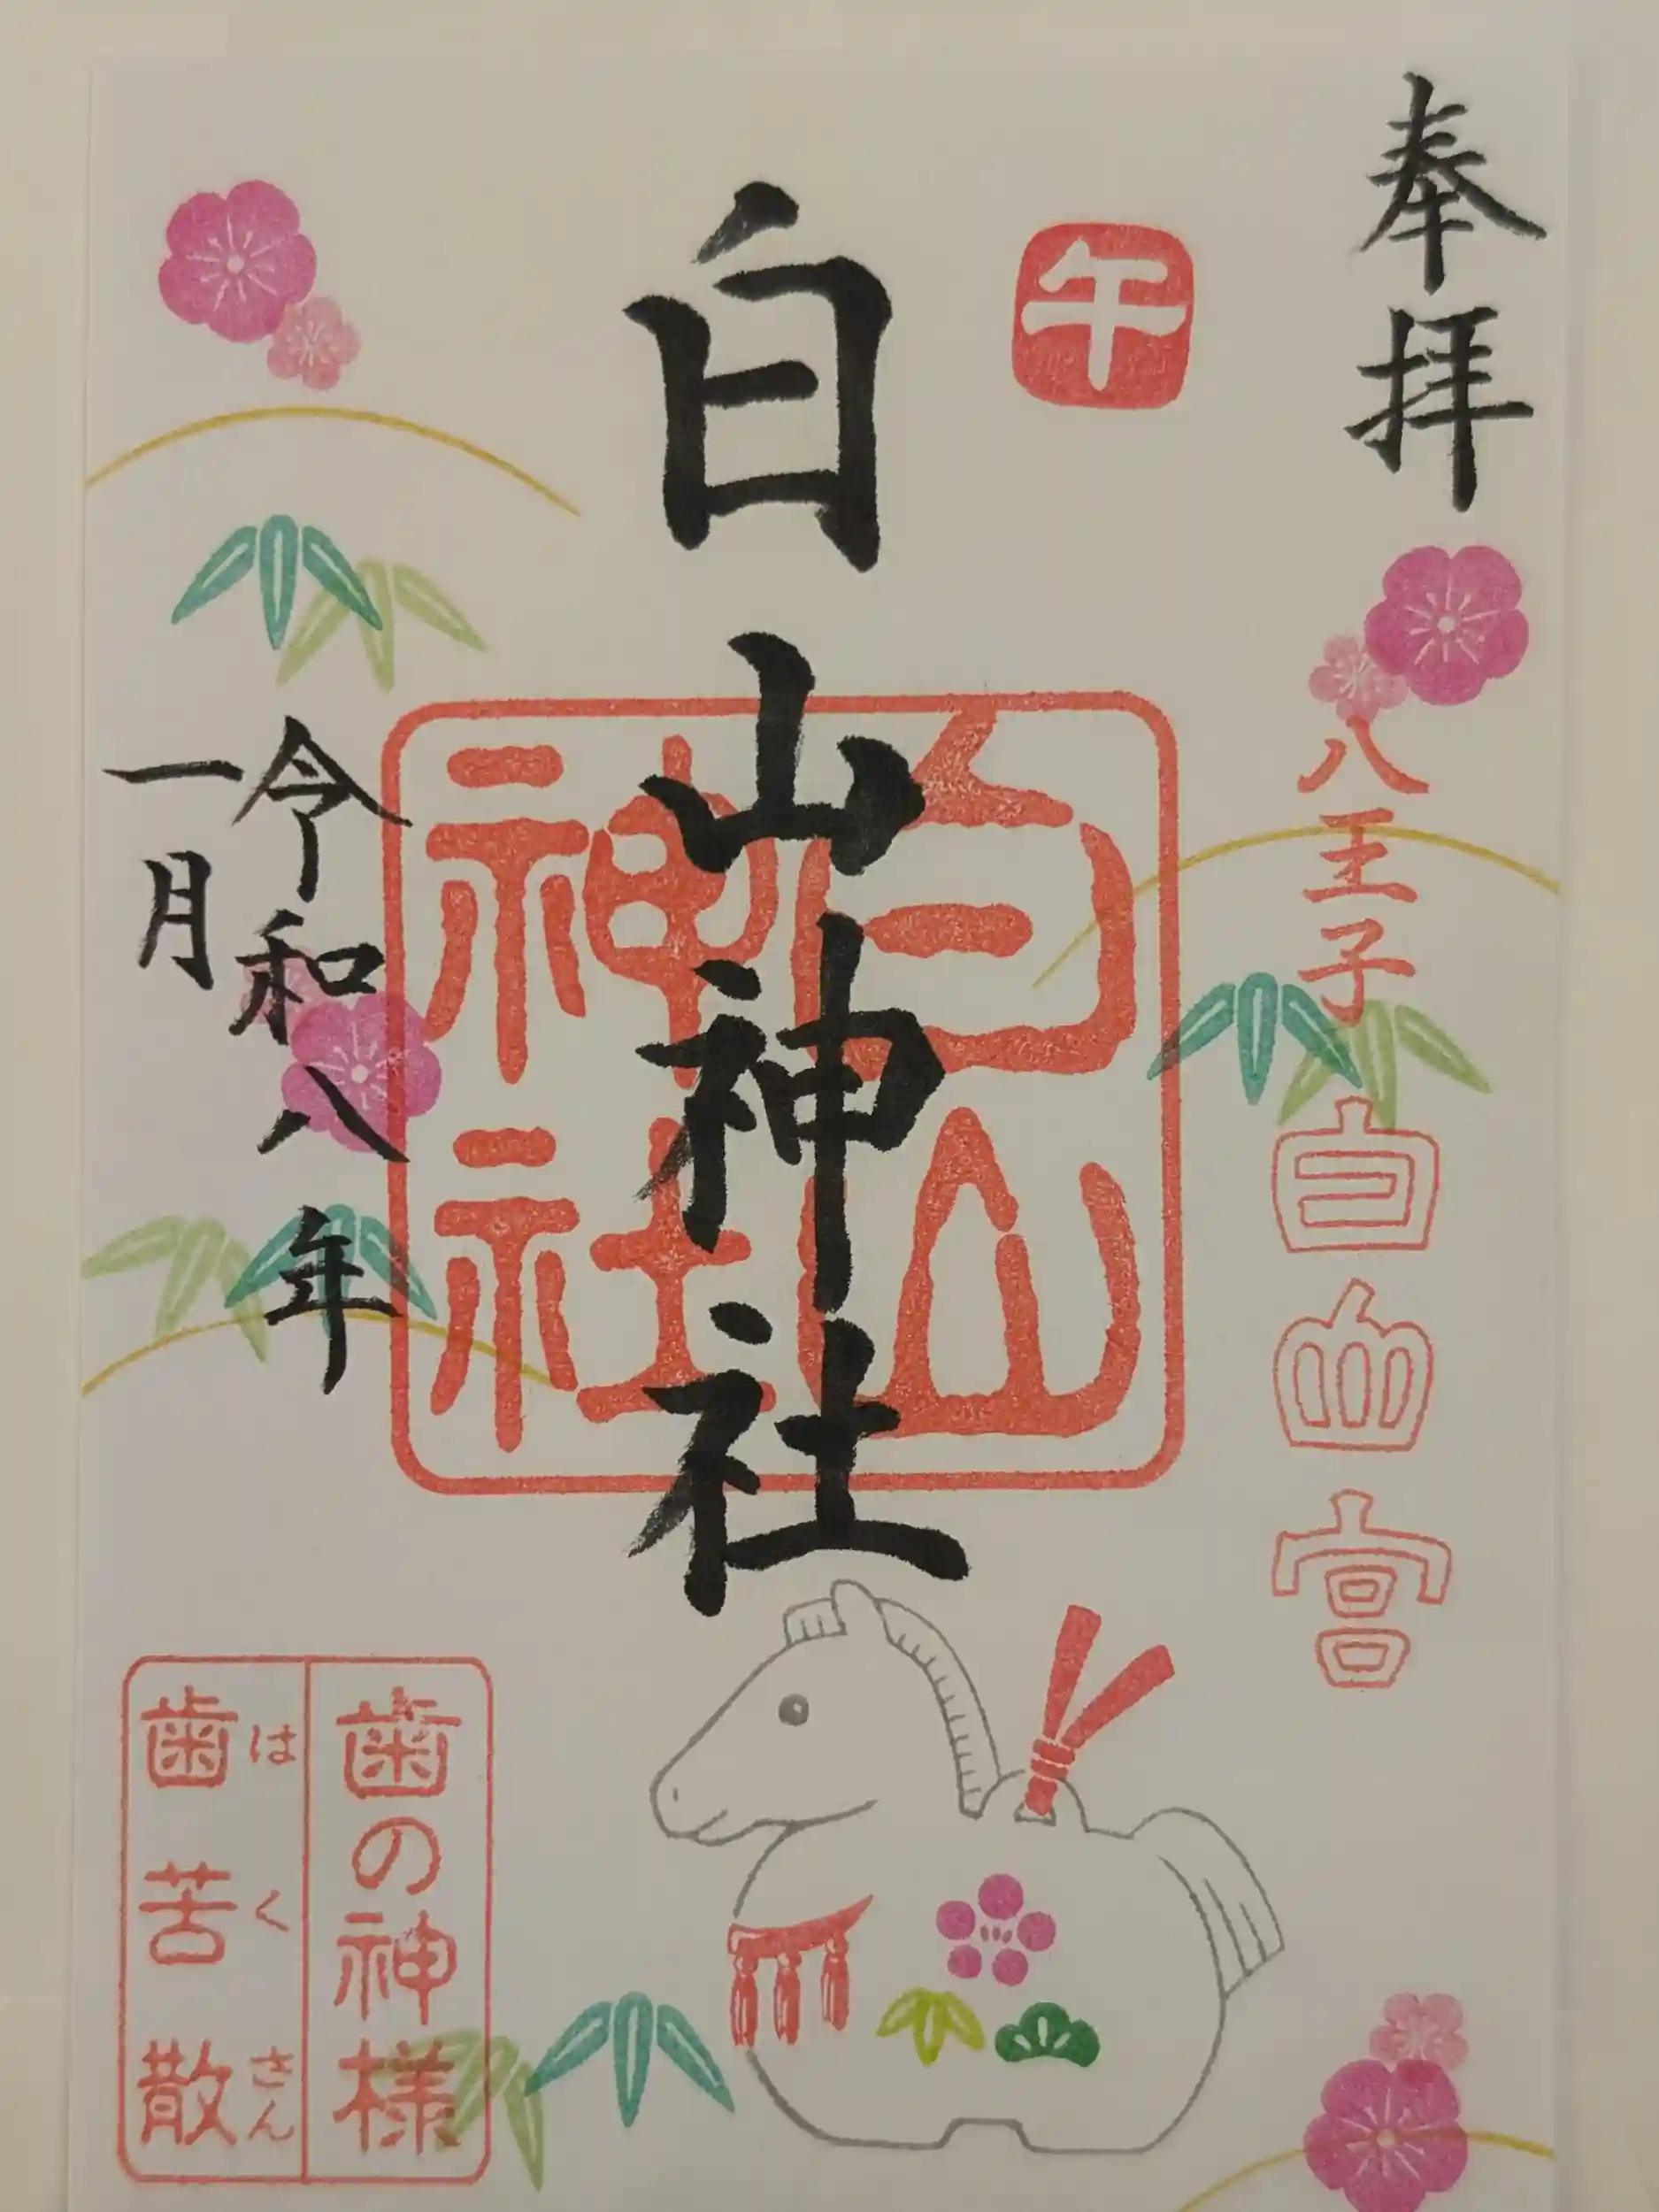 奉拝
八王子
午
白山神社
白山
神社
令和八年
一月
歯の神様
はくさん
歯苦散